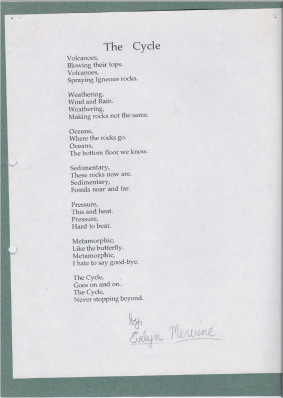 The Cycle
Volcanoes,
Blowing their tops.
Volcanoes,
Spraying Igneous rocks.
Weathering,
Wind and Rain.
Weathering,
Making rocks not the same.
Oceans,
Where the rocks go.
Oceans,
The bottom floor we know.
Sedimentary,
These rocks now are.
Sedimentary,
Fossils near and far.
Pressure,
This and heat.
Pressure,
Hard to beat.
Metamorphic,
Like the butterfly.
Metamorphic,
I hate to say good-bye.
The Cycle,
Goes on and on.
The Cycle,
Never stopping beyond.
by
Evelyn Mervine